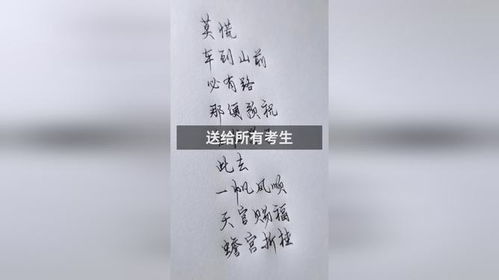 莫慌
车到山前
必有路
那便预祝
送给所有考生
此去
一帆风顺
天官赐福
蟾宫折桂